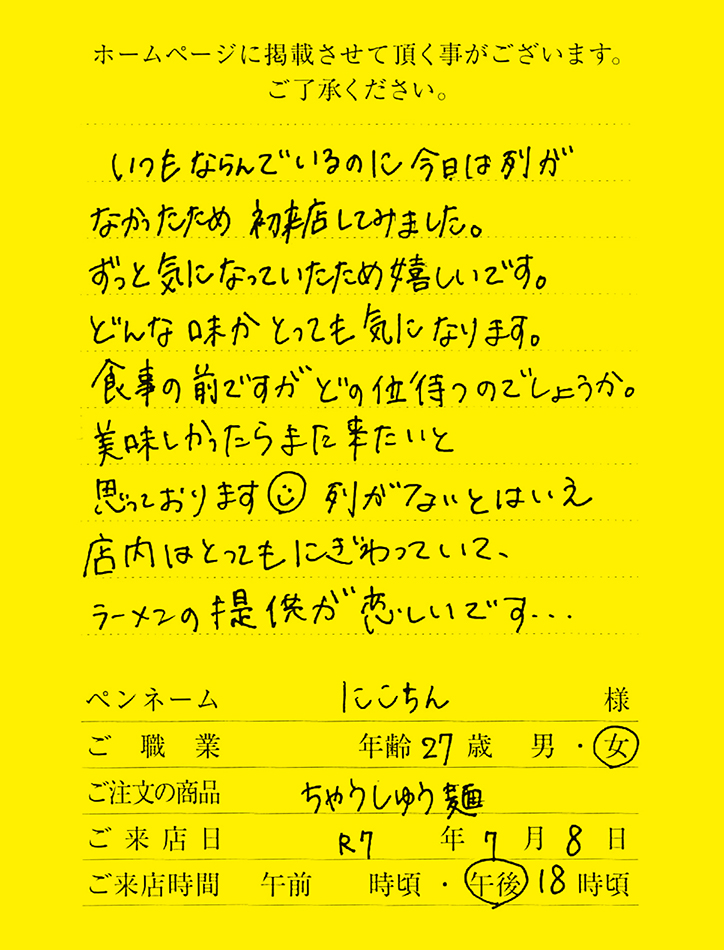 ホームページに掲載させて頂く事がございます。
ご了承ください。
いつもならんでいるのに今日は列が
なかったため 初来店してみました。
ずっと気になっていたため嬉しいです。
どんな味かとっても気になります。
食事の前ですがどの位待つのでしょうか。
美味しかったらまた来たいと
思っております☺ 列がないとはいえ
店内はとってもにぎわっていて、
ラーメンの提供が恋しいです...
ペンネーム にこちん 様
ご職業 年齢 27 歳 男・女
ご注文の商品 ちゃうしゅう麺
ご来店日 R7 年 7 月 8 日
ご来店時間 午前 時頃・午後 18 時頃